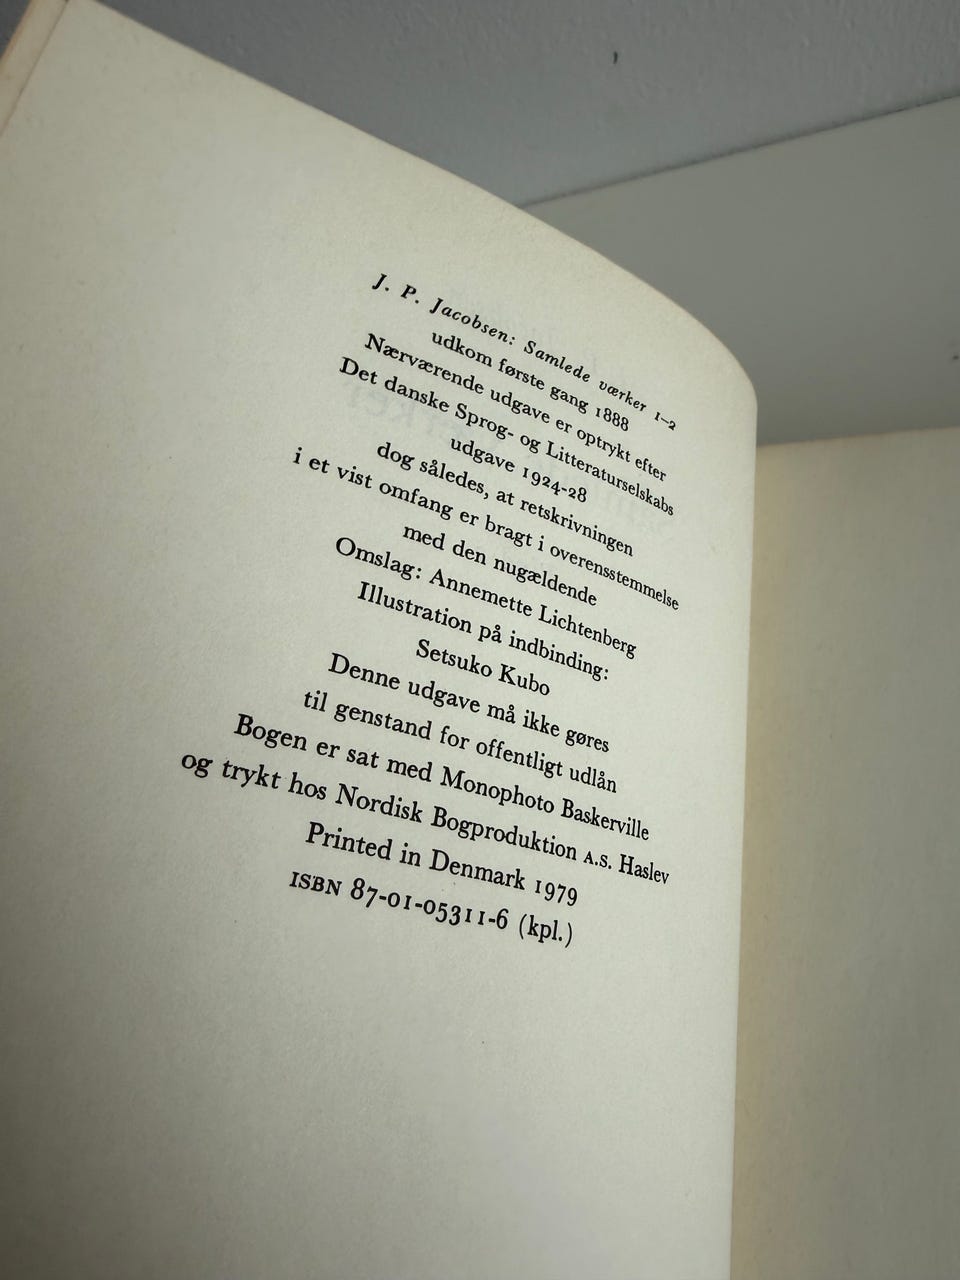 J. P. Jacobsen: Samlede værker 1-2
udkom første gang 1888
Nærværende udgave er optrykt efter
Det danske Sprog- og Litteraturselskabs
udgave 1924-28
dog således, at retskrivningen
i et vist omfang er bragt i overensstemmelse
med den nugældende
Omslag: Annemette Lichtenberg
Illustration på indbinding:
Setsuko Kubo
Denne udgave må ikke gøres
til genstand for offentligt udlån
Bogen er sat med Monophoto Baskerville
og trykt hos Nordisk Bogproduktion A.S. Haslev
Printed in Denmark 1979
ISBN 87-01-05311-6 (kpl.)